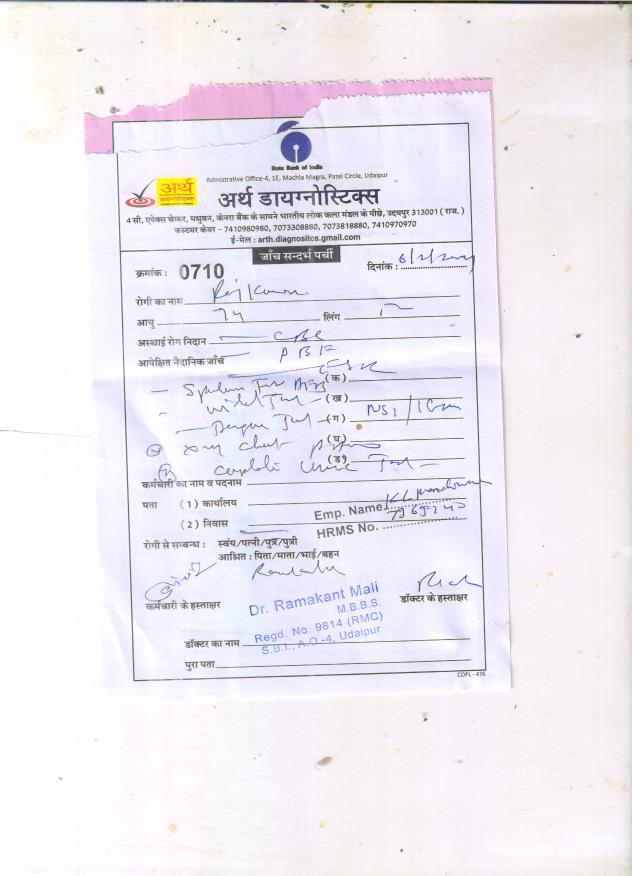 State Bank of India
Admistrative Office-4, 1E, Machla Magra, Patel Circle, Udaipur
अर्थ
डायग्नोस्टिक्स
अर्थ डायग्नोस्टिक्स
4 सी, एपेक्स चेम्बर, मधुबन, केनरा बैंक के सामने भारतीय लोक कला मंडल के पीछे, उदयपुर 313001 ( राज. )
कस्टमर केयर - 7410980980, 7073308880, 7073818880, 7410970970
ई-मेल : arth.diagnositcs.gmail.com
जाँच सन्दर्भ पर्ची
क्रमांक : 0710 दिनांक :
रोगी का नाम
आयु 74 लिंग
अस्थाई रोग निदान CBC
आपेक्षित नैदानिक जाँच PBF
ESR (क)
Widal Test (ख)
Test (ग) NS1 / IGm
X ray chest (घ)
Complete Urine Test (ड)
कर्मचारी का नाम व पदनाम
पता ( 1 ) कार्यालय Emp. Name
( 2 ) निवास HRMS No.
रोगी से सम्बन्ध : स्वंय/पत्नी/पुत्र/पुत्री
आश्रित : पिता/माता/भाई/बहन
कर्मचारी के हस्ताक्षर डॉक्टर के हस्ताक्षर
Dr. Ramakant Mali
M.B.B.S.
Regd. No. 9814 (RMC)
S.B.I., A.O.-4, Udaipur
डॉक्टर का नाम
पुरा पता
COPL - 476